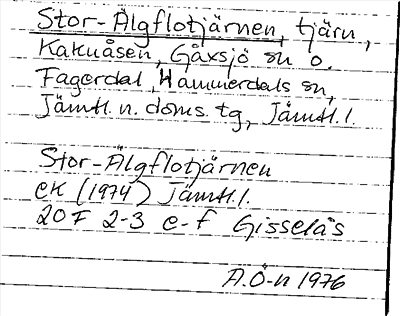 Stor-Älgflotjärnen, tjärn,
Kakuåsen, Gåxsjö sn o.
Fagerdal, Hammerdals sn,
Jämtl. n. doms. tg, Jämtl. l.
Stor-Älgflotjärnen
ek (1974) Jämtl. l.
20F 2-3 e-f Gisselås
A.Ö-n 1976